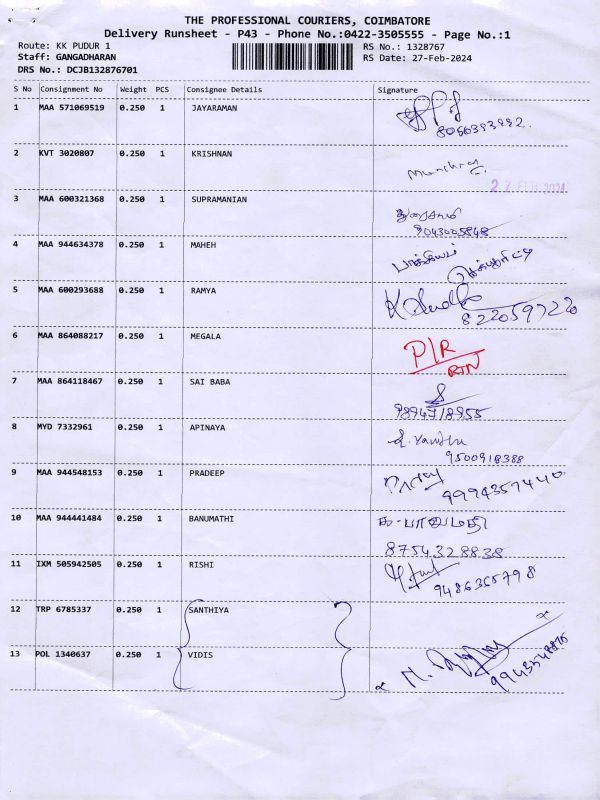 THE PROFESSIONAL COURIERS, COIMBATORE
Delivery Runsheet - P43 - Phone No.:0422-3505555 - Page No.:1
Route: KK PUDUR 1 RS No.: 1328767
Staff: GANGADHARAN RS Date: 27-Feb-2024
DRS No.: DCJB132876701
S No Consignment No Weight PCS Consignee Details Signature
1 MAA 571069519 0.250 1 JAYARAMAN
2 KVT 3020807 0.250 1 KRISHNAN
27 FEB 2024
3 MAA 600321368 0.250 1 SUPRAMANIAN
துரைசாமி
4 MAA 944634378 0.250 1 MAHEH
5 MAA 600293688 0.250 1 RAMYA
8220597220
6 MAA 864088217 0.250 1 MEGALA
P/R
RTN
7 MAA 864118467 0.250 1 SAI BABA
9894718955
8 MYD 7332961 0.250 1 APINAYA
9500918388
9 MAA 944548153 0.250 1 PRADEEP
9994357440
10 MAA 944441484 0.250 1 BANUMATHI
க.பானுமதி
8754328838
11 IXM 505942505 0.250 1 RISHI
9486365798
12 TRP 6785337 0.250 1 SANTHIYA
13 POL 1340637 0.250 1 VIDIS